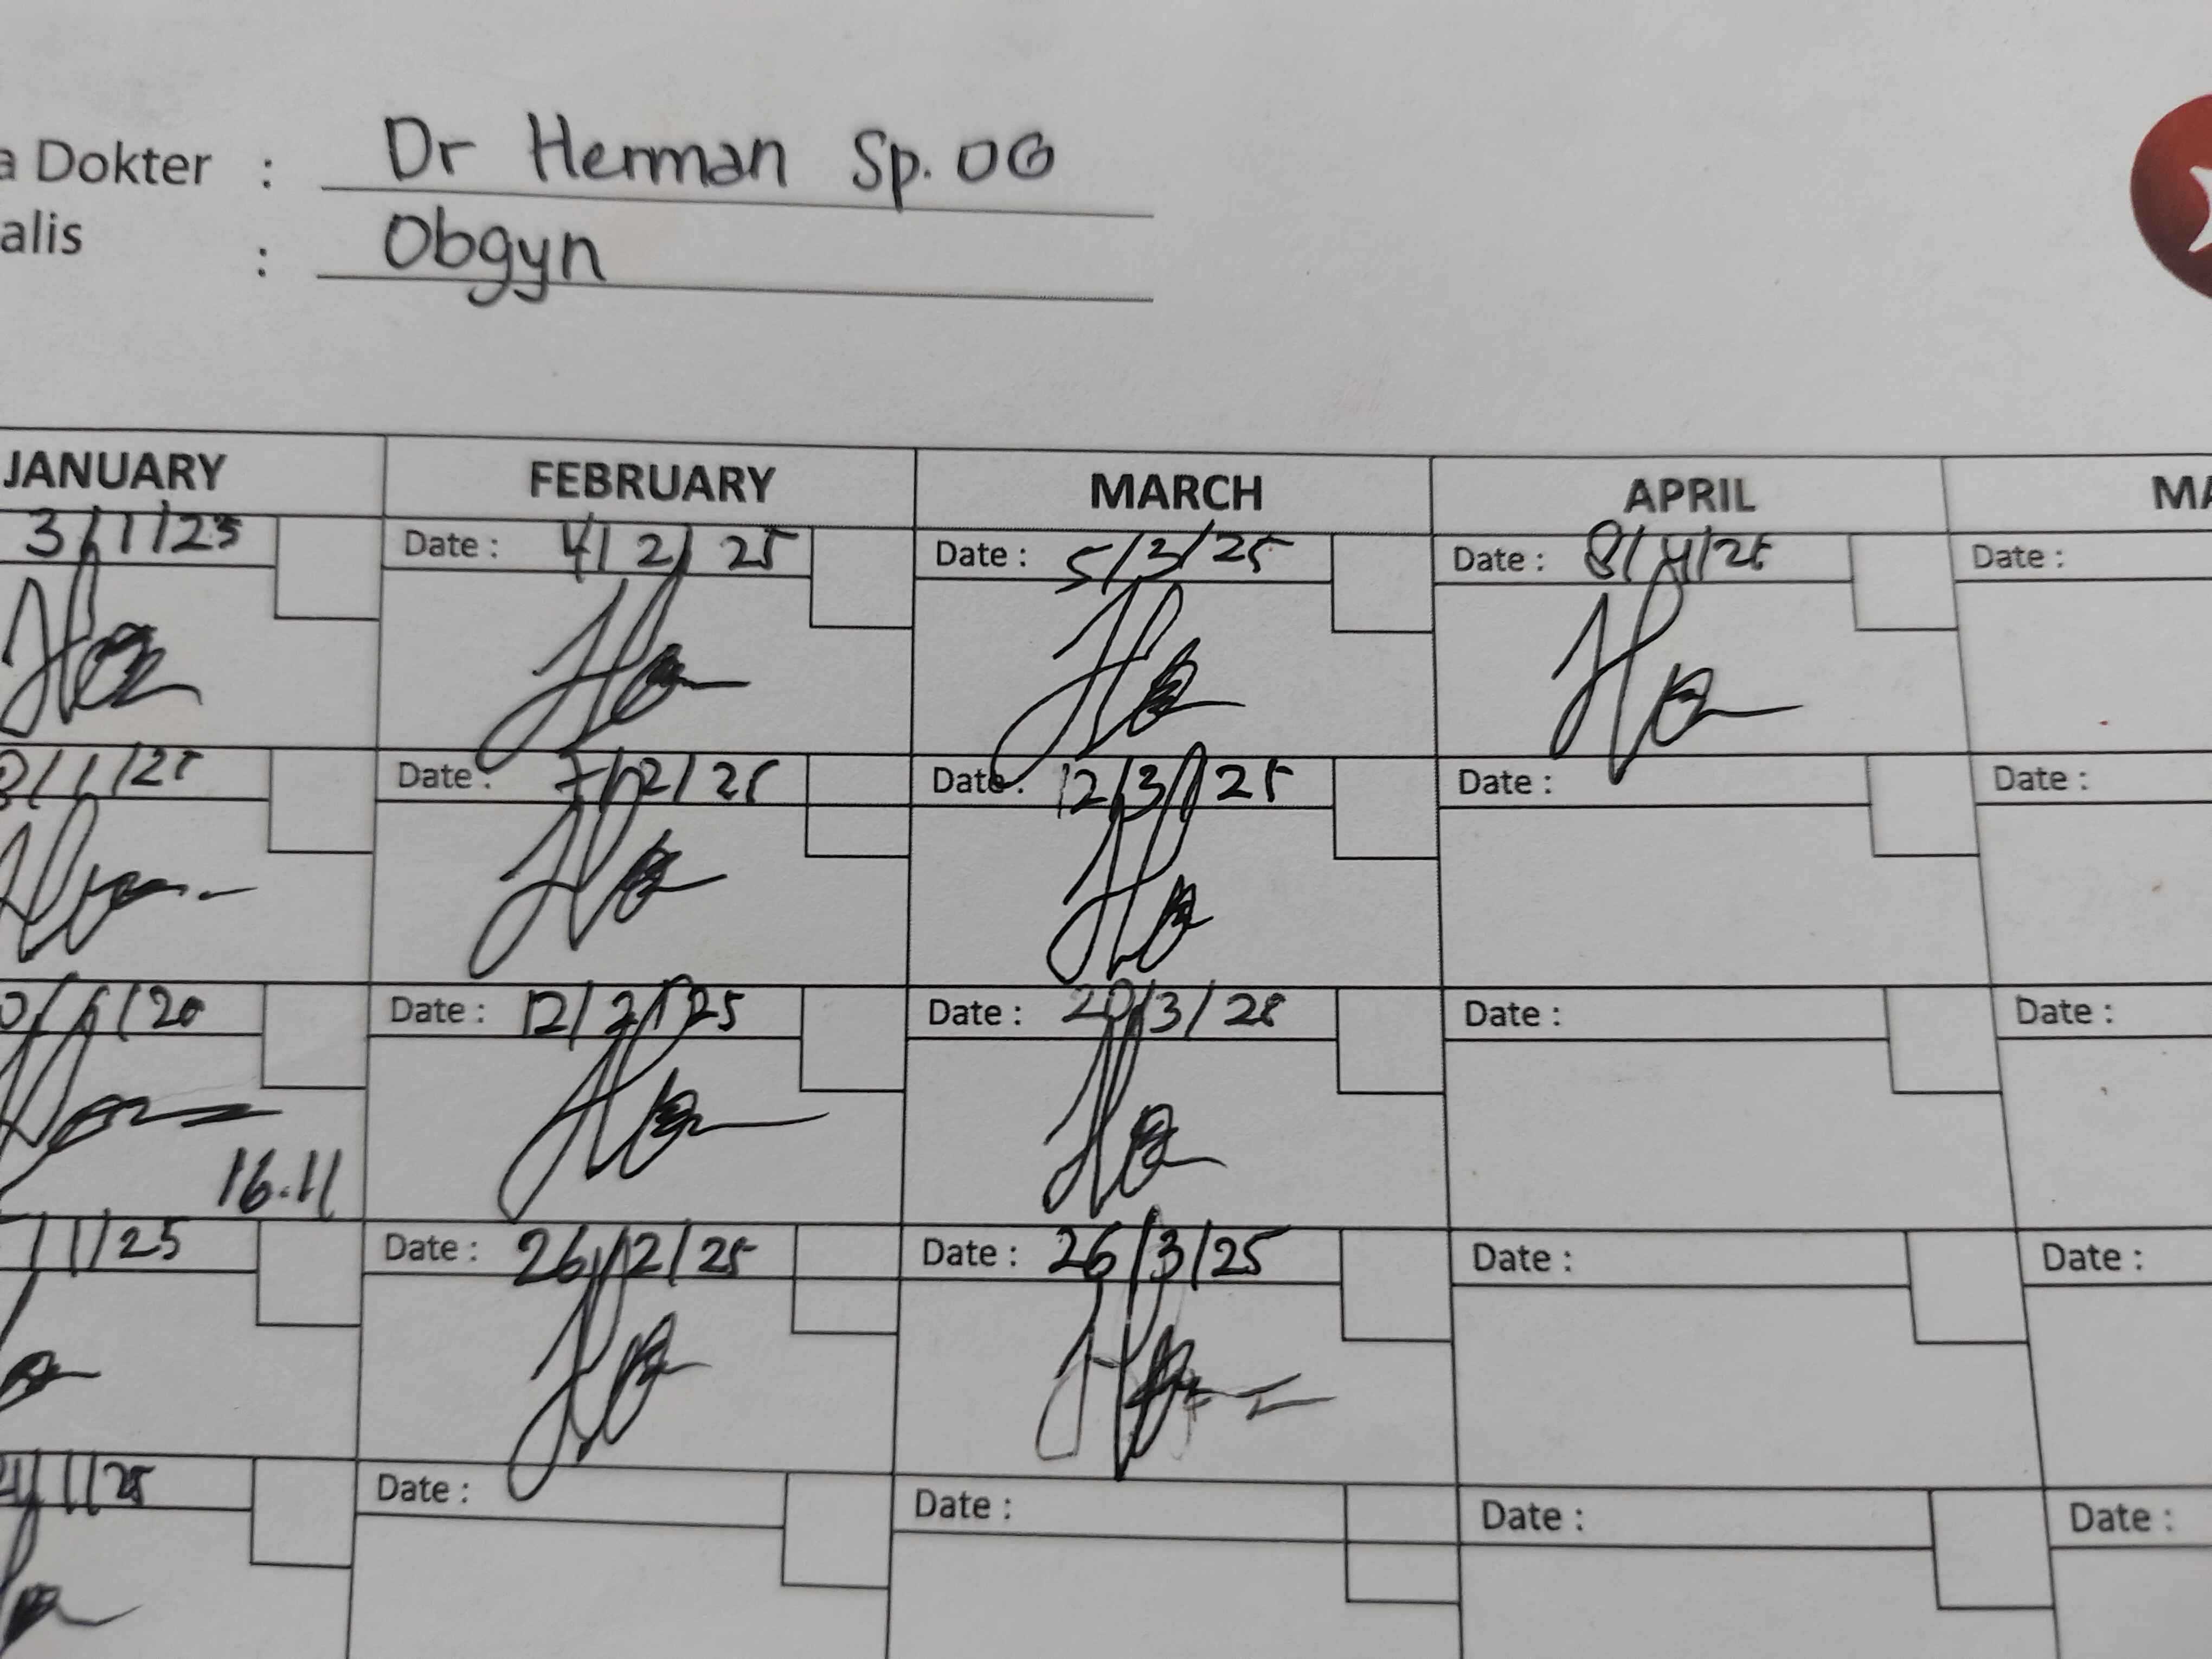 a Dokter : Dr Herman Sp. OG
alis : Obgyn
JANUARY FEBRUARY MARCH APRIL MA
3/1/25 Date : 4/2/25 Date : 5/3/25 Date : 8/4/25 Date :
/1/25 Date : 7/2/25 Date : 12/3/25 Date : Date :
Date : 12/2/25 Date : 20/3/25 Date : Date :
16.11
/1/25 Date : 26/2/25 Date : 26/3/25 Date : Date :
/1/25 Date : Date : Date : Date :